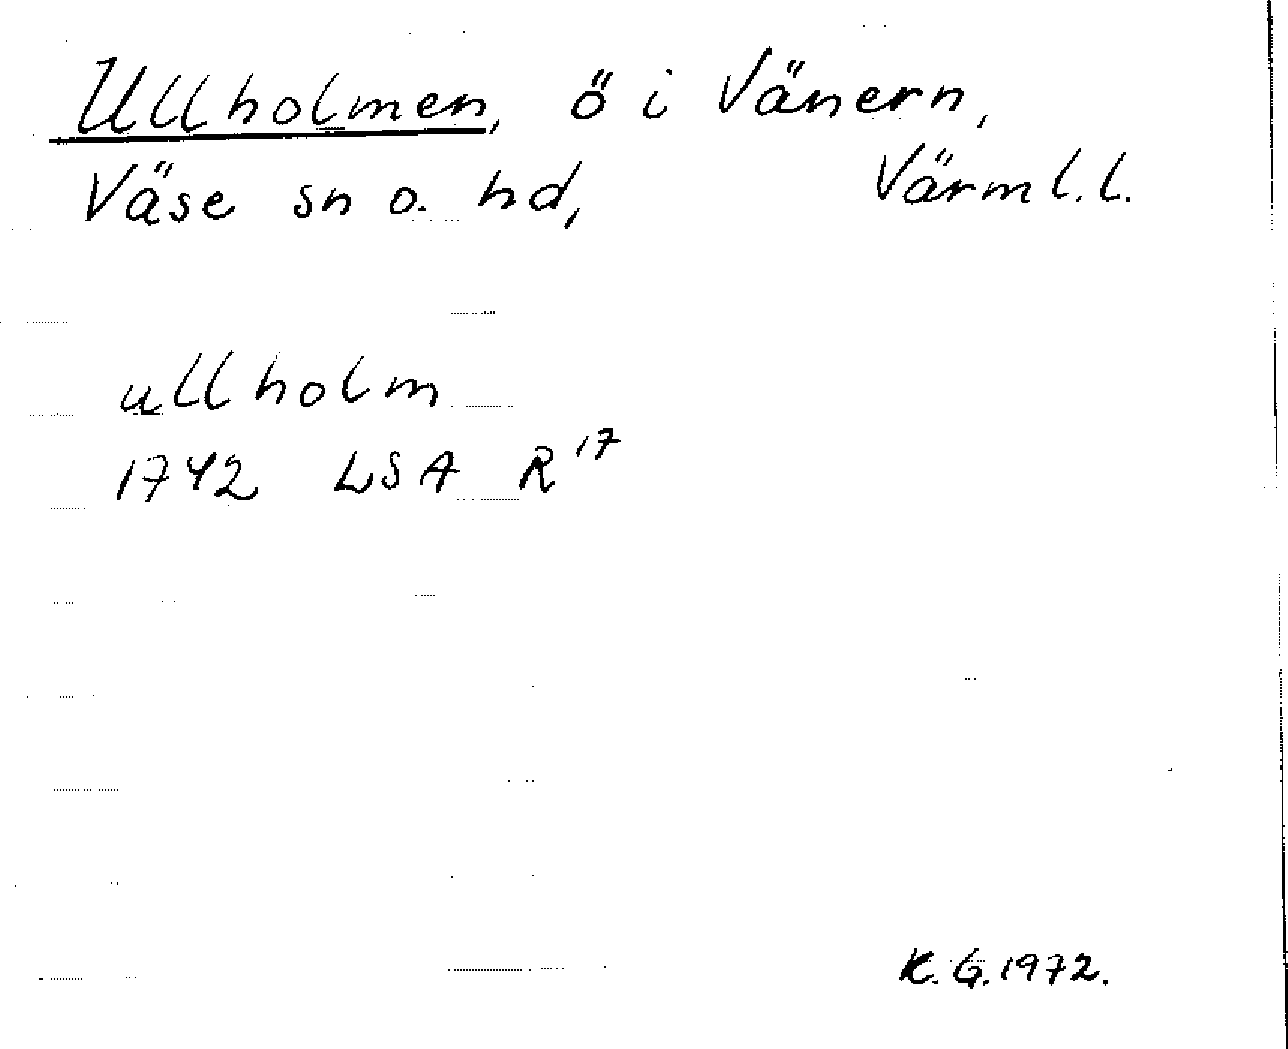 Ullholmen, ö i Vänern,
Väse sn o. hd, Värml.l.
ullholm
1742 LSA R 17
K.G. 1972.